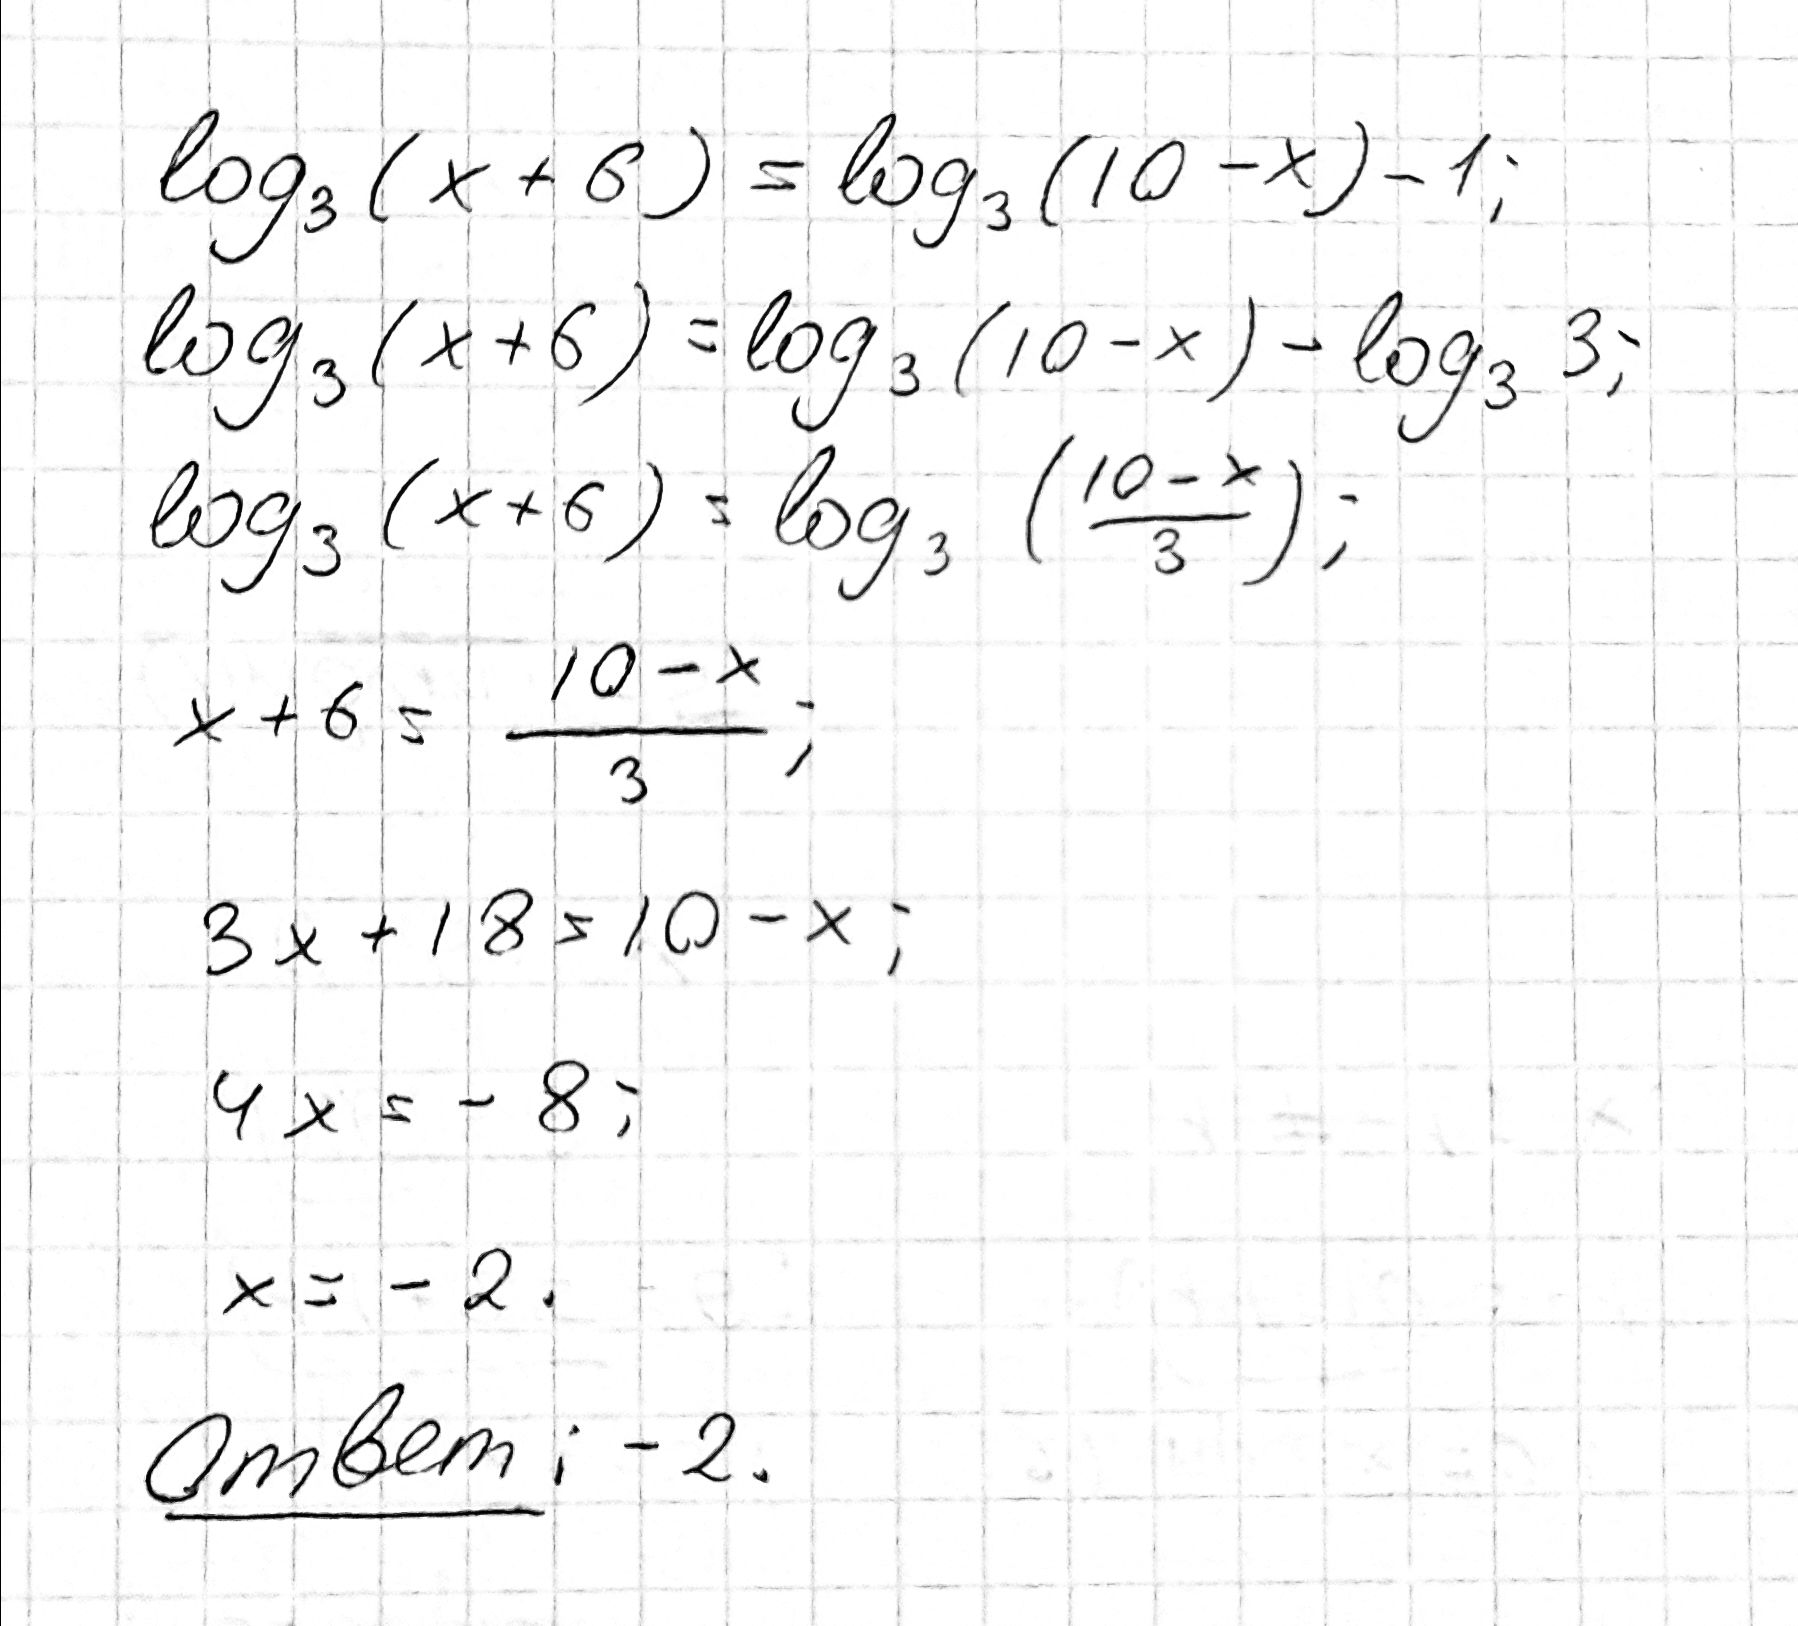 log₃(x+6) = log₃(10-x)-1;
log₃(x+6) = log₃(10-x) - log₃ 3;
log₃(x+6) = log₃((10-x)/3);
x+6 = (10-x)/3;
3x+18=10-x;
4x=-8;
x=-2.
Ответ: -2.